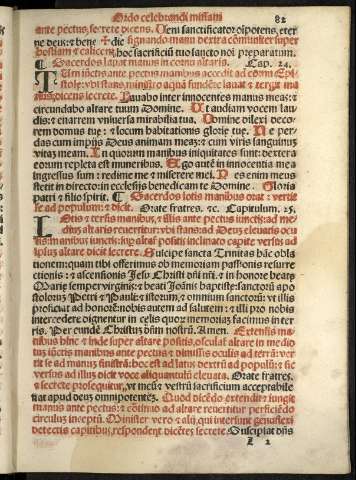 Ordo celebrandi missam
82
ante pectus, secrete dicens. Veni sanctificator oīpotens, eter
ne deus: ⁊ bene ✠ dic signando manu dextra cōmuniter super
hostiam ⁊ calicem hoc sacrificiū tuo sancto noī preparatum.
¶ Sacerdos lavat manus in cornu altaris. Cap. 24.
Tum iūctis ante pectus manibus accedit ad cornu Epi
stole: vbi stans, ministro aquā fundēte lauat ⁊ tergit ma
nus, dicens secrete. Lauabo inter innocentes manus meas: ⁊
circundabo altare tuum Domine. Vt audiam vocem lau
dis: ⁊ enarrem vniuersa mirabilia tua. Domine dilexi deco-
rem domus tue: ⁊ locum habitationis glorie tue. Ne per-
das cum impijs Deus animam meam: ⁊ cum viris sanguinum
vitam meam. In quorum manibus iniquitates sunt: dextera
eorum repleta est muneribus. Ego autē in innocentia mea
ingressus sum: redime me ⁊ miserere mei. Pes enim meus
stetit in directo: in ecclesijs benedicam te Domine. Gloria
patri ⁊ filio spirit. ¶ Sacerdos lotis manibus orat: verti
se ad populum: ⁊ dicit. Orate fratres. ⁊c. Capitulum. 25.
Lotis ⁊ tersis manibus, ⁊ illis ante pectus iunctis: ad me
dium altaris reuertitur: vbi stans: ad Deum eleuatis ocu
lis, manibus iunctis: sup altaf positis, inclinato capite versus ad
ipsum altare dicit secrete. Suscipe sancta Trinitas hāc obla
tionem: quam tibi offerimus ob memoriam passionis resurre
ctionis: ⁊ ascensionis Jesu Christi dn̄i nr̄i. ⁊ in honore beate
Marie semper virginis: ⁊ beati Joānis baptiste: sanctorū apo
stolorum Petri ⁊ Pauli: ⁊ istorum, ⁊ omnium sanctorū: vt illis
proficiat ad honorē: nobis autem ad salutem: ⁊ illi pro nobis
intercedere dignentur in celis: quorū memoriaȝ facimus in ter
ris. Per eundē Christum dn̄m nostrū. Amen. Extensis ma
nibus hinc ⁊ inde super altare positis, osculat̄ altare in medio
tuȝ iūctis manibus ante pectus ⁊ dimissis oculis ad terrā: ver
tit se ad manus sinistrā: hoc est ad latus dextrū ad populū: ⁊ sic
versus ad illum dicit voce aliquantulū eleuata. Orate fratres.
⁊ secrete prosequitur, vt meū ⁊ vestrū sacrificium acceptabile
fiat apud deum omnipotentē. Quod dicēdo extendit ⁊ iungit
manus ante pectus: ⁊ cōtinuo ad altare reuertitur perficiēdo
circulum inceptū. Minister vero ⁊ alij, qui intersunt genuflexi
detectis capitibus, respondent dicētes secrete Suscipiat dn̄s
L 2